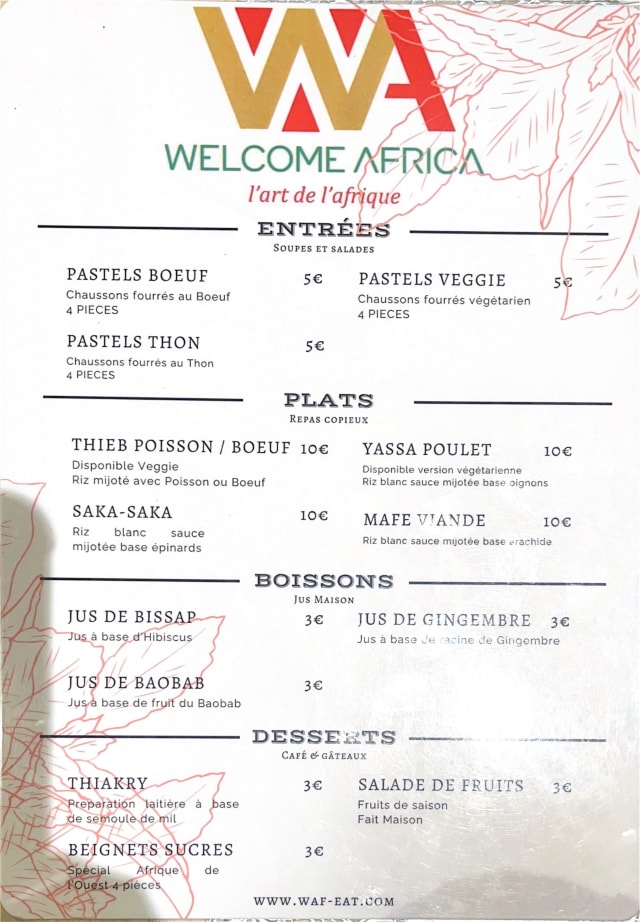 WA
WELCOME AFRICA
l'art de l'afrique
ENTRÉES
SOUPES ET SALADES
PASTELS BOEUF 5€
Chaussons fourrés au Boeuf
4 PIECES
PASTELS VEGGIE 5€
Chaussons fourrés végétarien
4 PIECES
PASTELS THON 5€
Chaussons fourrés au Thon
4 PIECES
PLATS
REPAS COPIEUX
THIEB POISSON / BOEUF 10€
Disponible Veggie
Riz mijoté avec Poisson ou Boeuf
YASSA POULET 10€
Disponible version végétarienne
Riz blanc sauce mijotée base oignons
SAKA-SAKA 10€
Riz blanc sauce
mijotée base épinards
MAFE VIANDE 10€
Riz blanc sauce mijotée base arachide
BOISSONS
JUS MAISON
JUS DE BISSAP 3€
Jus à base d'Hibiscus
JUS DE GINGEMBRE 3€
Jus à base de racine de Gingombre
JUS DE BAOBAB 3€
Jus à base de fruit du Baobab
DESSERTS
CAFÉ & GÂTEAUX
THIAKRY 3€
Preparation laitière à base
de semoule de mil
SALADE DE FRUITS 3€
Fruits de saison
Fait Maison
BEIGNETS SUCRES 3€
Spécial Afrique de
l'Ouest 4 pièces
WWW.WAF-EAT.COM